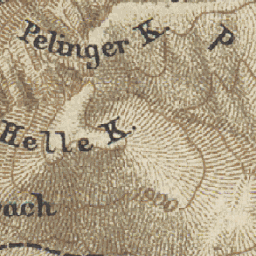 Pelinger K.
P
Helle K.
ach
1900